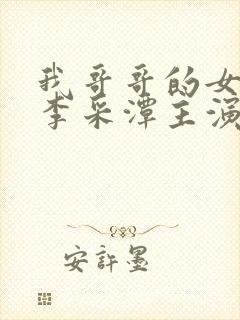 我哥哥的女
李采潭主演
安許墨